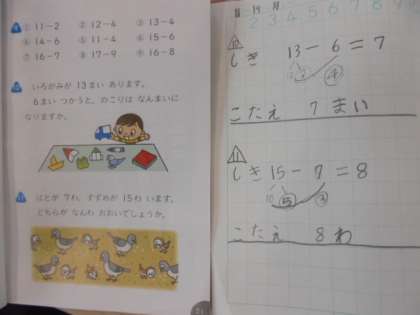 ① 11-2 ② 12-4 ③ 13-4
④ 14-6 ⑤ 11-4 ⑥ 15-6
⑦ 16-7 ⑧ 17-9 ⑨ 16-8
いろがみが 13まい あります。
6まい つかうと、のこりは なんまいに
なりますか。
はとが 7わ、すずめが 15わ います。
どちらが なんわ おおいでしょうか。
2 3 4 5 6 7 8 9
⑩
しき 13-6=7
こたえ 7まい
⑪
しき 15-7=8
10 ⑤
こたえ 8わ